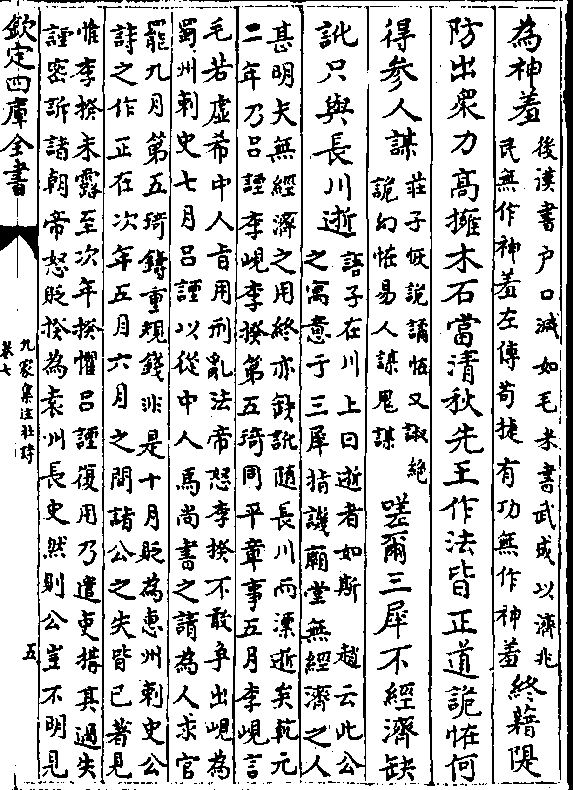 為神羞
後漢書户口減如毛米書武成以濟兆
民無作神羞左傳苟捷有功無作神羞
終藉隄
防出衆力高擁木石當清秋先王作法皆正道詭怪何
得參人謀
莊子恢說譎怪又諔絶
詭幻怪易人謀鬼謀
嗟爾三犀不經濟缺
訛只與長川逝
語子在川上曰逝者如斯 趙云此公
之寓意于三犀指譏廟堂無經濟之人
甚明夫無經濟之用終亦缺訛隨長川而漂逝矣乾元
二年乃吕諲李峴李揆第五琦同平章事五月李峴言
毛若虚希中人㫖用刑亂法帝怒李揆不敢争出峴為
蜀州刺史七月吕諲以從中人馬尚書之請為人求官
罷九月第五琦鑄重規錢非是十月貶為惠州刺史公
詩之作正在次年五月六月之間諸公之失皆已著見
惟李揆未露至次年揆懼吕諲復用乃遣吏搆其過失
諲密訴諸朝帝怒貶揆為袁州長史然則公豈不明見
欽定四庫全書
九家集注杜詩
卷七
五